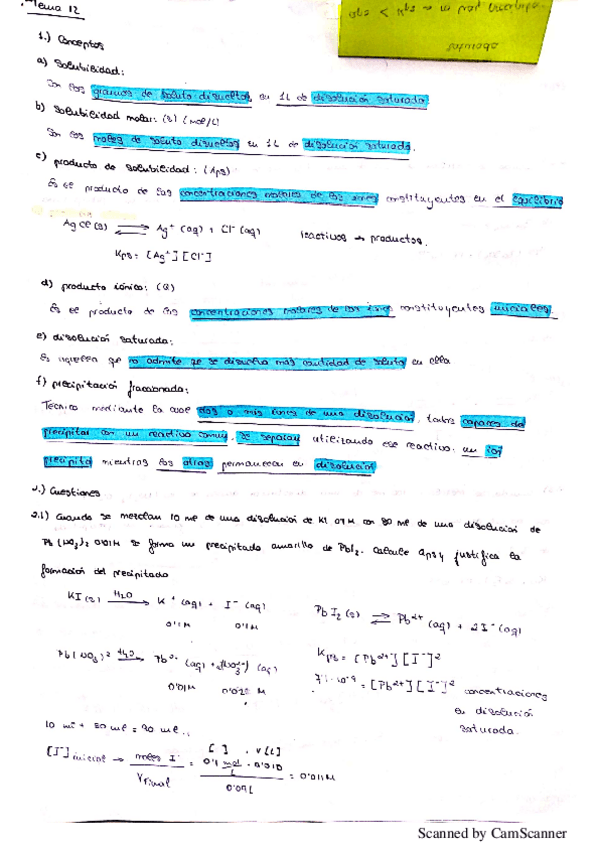 Tema 12
1.) Conceptos
a) Solubilidad:
Son los gramos de soluto disueltos en 1L de disolución saturada.
b) Solubilidad molar: (s) (mol/L)
Son los moles de soluto disueltos en 1L de disolución saturada.
c) producto de solubilidad: (Kps)
Es el producto de las concentraciones molares de los iones constituyentes en el equilibrio
AgCl(s) ⇌ Ag⁺(aq) + Cl⁻(aq) reactivos → productos.
Kps = [Ag⁺][Cl⁻]
d) producto iónico: (Q)
Es el producto de las concentraciones molares de los iones constituyentes iniciales.
e) disolución saturada:
Es aquella que no admite que se disuelva más cantidad de soluto en ella
f) precipitación fraccionada:
Técnica mediante la cual dos o más iones de una disolución, todos capaces de
precipitar con un reactivo común, se separan utilizando ese reactivo: un ion
precipita mientras los otros permanecen en disolución
2.) Cuestiones
2.1) Cuando se mezclan 10 ml de una disolución de KI 0'1 M con 80 ml de una disolución de
Pb(NO₃)₂ 0'01 M se forma un precipitado amarillo de PbI₂. Calcule Kps y justifica la
formación del precipitado
KI(s) H₂O→ K⁺(aq) + I⁻(aq) PbI₂(s) ⇌ Pb²⁺(aq) + 2I⁻(aq)
0'1M 0'1M
Kps = [Pb²⁺][I⁻]²
Pb(NO₃)₂ H₂O→ Pb²⁺(aq) + 2(NO₃⁻)(aq)
= [Pb²⁺][I⁻]² concentraciones
0'01M M en disolución
saturada.
10 ml + 80 ml = 90 ml
[I⁻]inicial → moles I⁻ / Vfinal = [ ] · V(L) 0'1 mol/L · 0'010 / 0'09L = 0'011M
Scanned by CamScanner